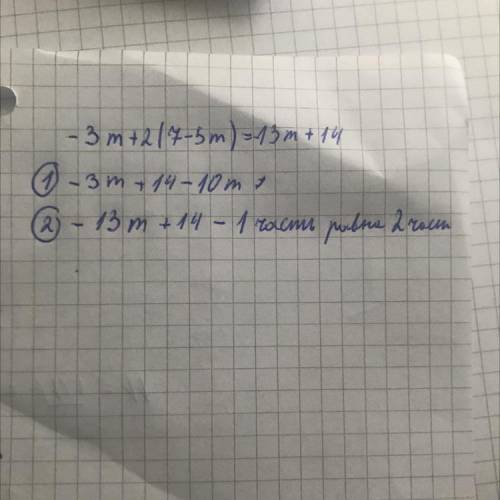 - 3m+2(7-5m)=13m+14
① -3m+14-10m
② - 13m+14 - 1 часть равна 2 част